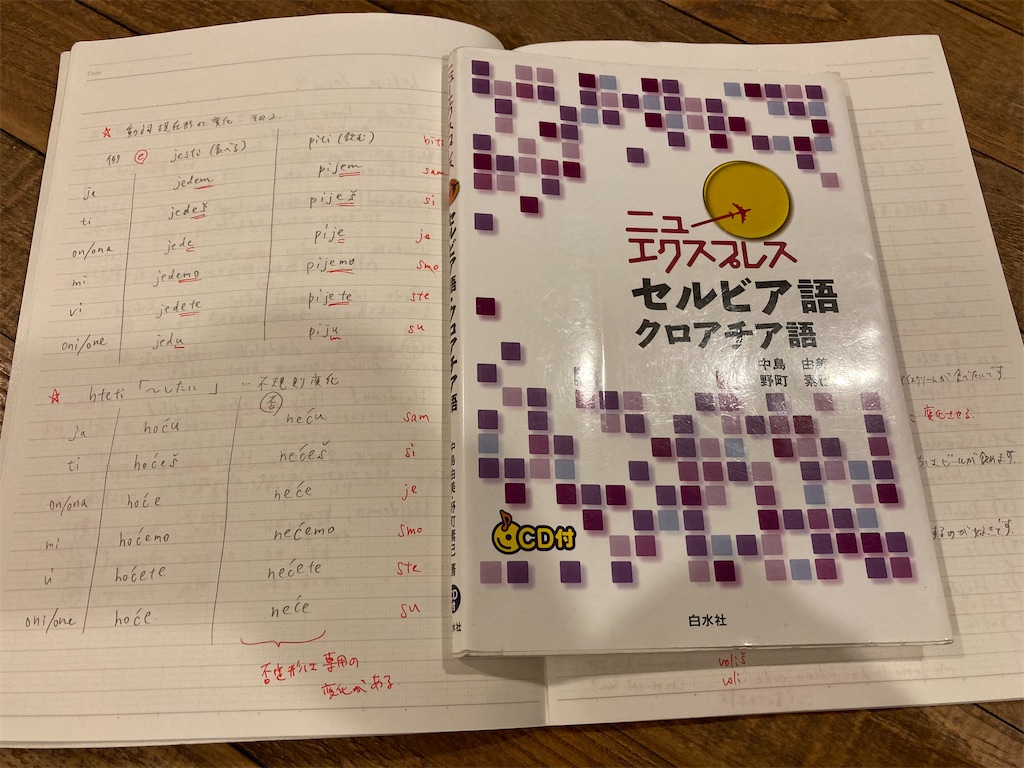 Date
☆ 動詞現在形の変化 その2
例 ⓔ jesti (食べる) piti (飲む)
je jedem pijem sam
ti jedeš piješ si
on/ona jede pije je
mi jedemo pijemo smo
vi jedete pijete ste
oni/one jedu piju su
☆ hteti「〜したい」 … 不規則変化
否
ja hoću neću sam
ti hoćeš nećeš si
on/ona hoće neće je
mi hoćemo nećemo smo
vi hoćete nećete ste
oni/one hoće neće su
否定形は専用の
変化がある
ニューエクスプレス セルビア語・クロアチア語 中島由美・野町素己 著 CD付 白水社
ニュー
エクスプレス
セルビア語
クロアチア語
中島 由美
野町 素己
CD付
白水社
アイスクリームが食べたいです
変化させる
はビールが飲めます.
するのが好きです.
voliš
voli